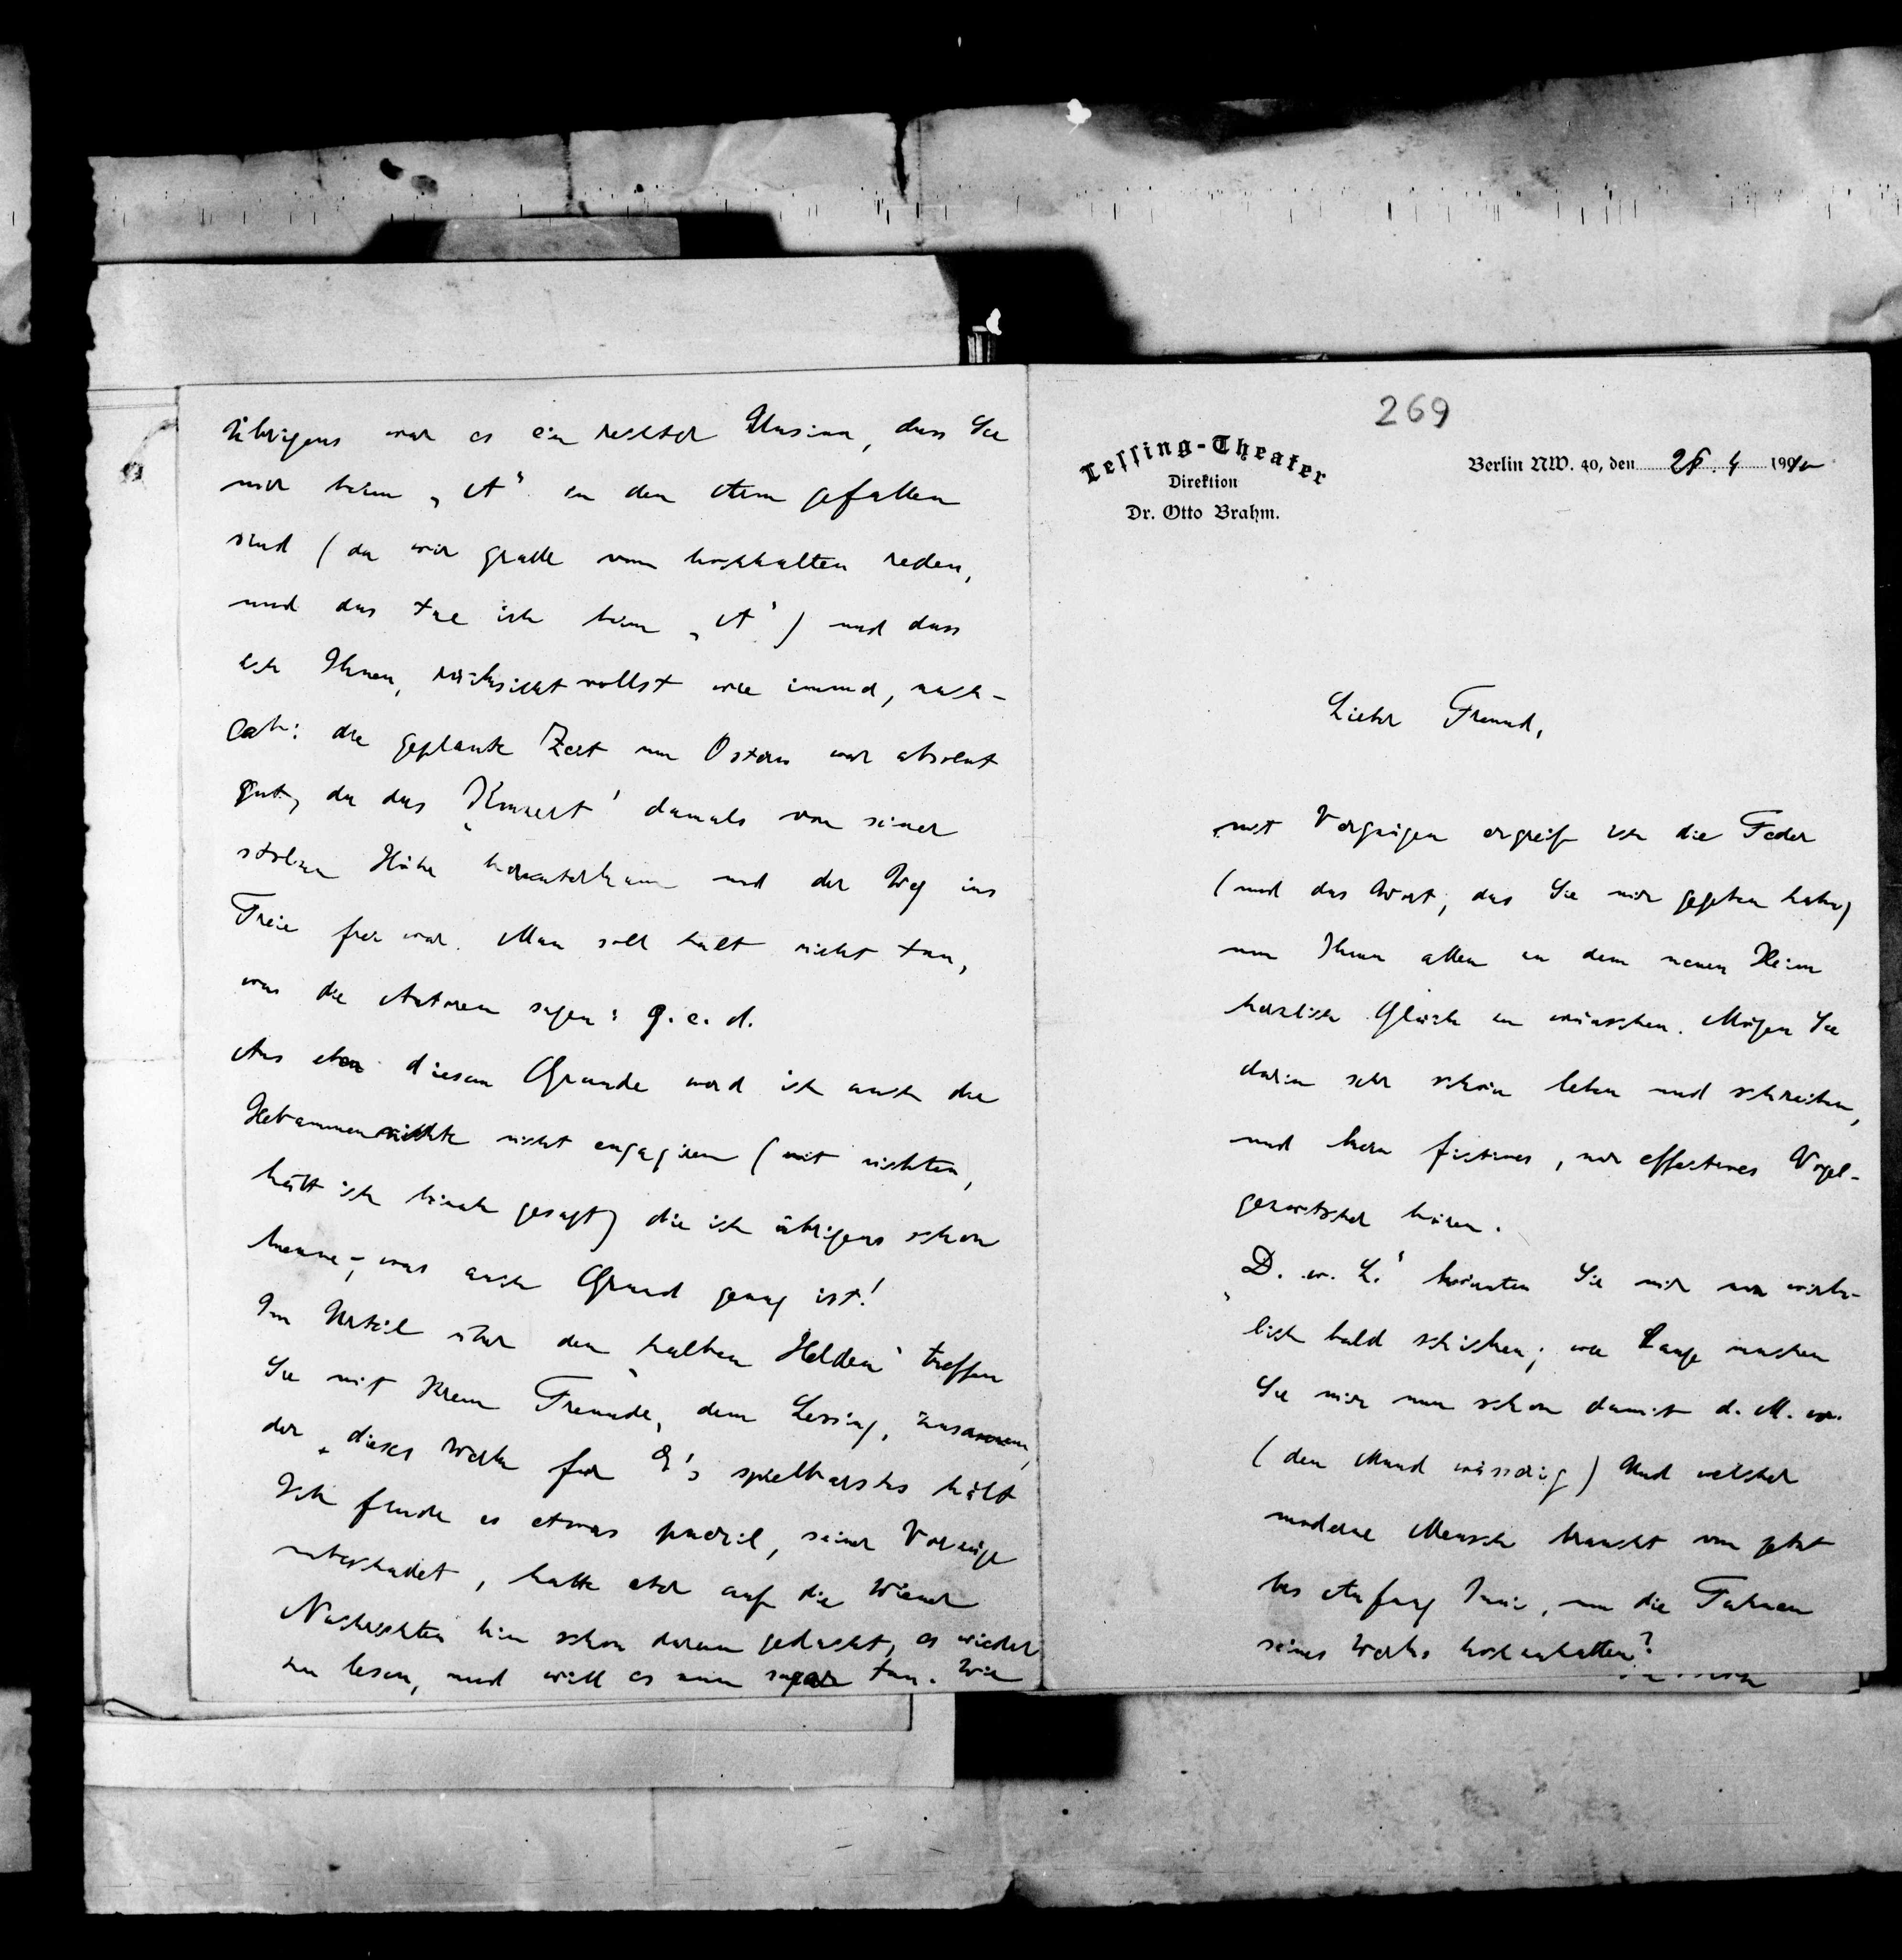 Übrigens war es ein rechter Unsinn, dass Sie
mir beim „A“ in den Arm gefallen
sind (da wir grade vom hochhalten reden,
und das tue ich beim „A“) und dass
ich Ihnen, rücksichtvollst wie immer, nach-
gab: die geplante Zeit um Ostern war absolut
gut, da das „Konzert“ damals von seiner
stolzen Höhe herunterkam und der Weg ins
Freie frei war. Man soll halt nicht tun,
was die Autoren sagen: q. e. d.
Aus eben diesem Grunde werd ich auch die
Hebammennichte nicht engagiren (mit nichten,
hätt ich beinah gesagt) die ich übrigens schon
kenne –, was auch Grund genug ist!
Im Urteil über den „halben Helden“ treffen
Sie mit Ihrem Freunde, dem Lessing, zusammen,
der dieses Werk für E's spielbarstes hält
Ich finde es etwas pueril, seiner Vorzüge
unbeschadet, hatte aber auf die Wiener
Nachrichten hin schon daran gedacht, es wieder
zu lesen, und will es nun sogar tun. Wie
269
Lessing-Theater
Direktion
Dr. Otto Brahm.
Berlin NW. 40, den 28. 4 1910
Lieber Freund,
mit Vergnügen ergreife ich die Feder
(und das Wort, das Sie mir gegeben haben)
um Ihnen allen zu dem neuen Heim
herzlich Glück zu wünschen. Mögen Sie
darin sehr schön leben und schreiben,
und kein fictives, nur effectives Vogel-
gezwitscher hören.
„D. w. L.“ könnten Sie mir nun wirk-
lich bald schicken; wie lange machen
Sie mir nun schon damit d. M. w.
(den Mund wässerig) Und welcher
moderne Mensch braucht von jetzt
bis Anfang Juni, um die Fahnen
seines Werks hochzuhalten?